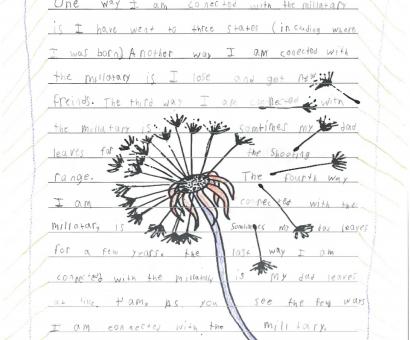 One way I am conected with the millatary
is I have went to three states (including where
I was born) Another way I am conected with
the millatary is I lose and get new
freinds. The third way I am conected with
the millatary is. somtimes my dad
leaves for the Shooting
range. The fourth way
I am conected with the
millatary is Somtimes my dad leaves
for a few years. the last way I am
conected with the millataty is my dad leaves
at five, As you see the few ways
I am connected with the military.